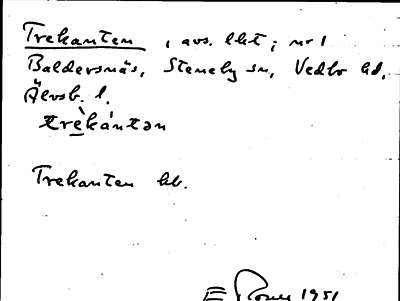 Trekanten, avs. lht; nr 1
Baldersnäs, Steneby sn, Vedbo hd,
Älvsb. l.
trè̱kántən
Trekanten kb.
1951